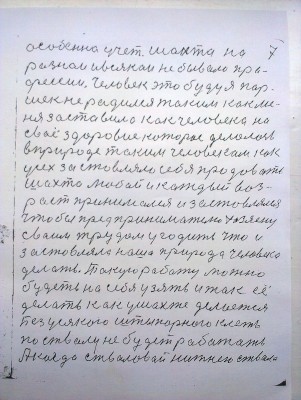 особенно учет. шахта на 7
разной и всякай не бывало про-
фессии. Человек это будуя пар-
шек не радился таким как ме-
ня заставила как человека на
своё здоровие каторае делолось
в природе таким человекам как
усех застовляло себя продовать
шахта любай и каждый воз-
раст принимался и застовлялся
что бы предпринимателю хозяену
сваим трудом угодить что и
застовляла наша природа человека
делать. Такую работу можно
будеть на себя узять и так её
делать как у шахте делается
Без усякого штыпорного клеть
по стволу не будет работать
А когда стваловай нижнего ствола